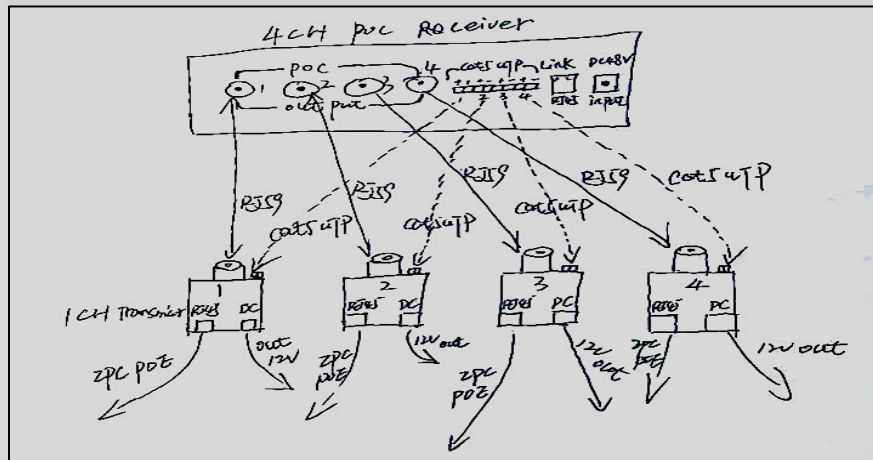 4CH POC Receiver
POC
1 2 3 4
out put
cat5 UTP
+ - + - + - + -
2 3 4
Link
RJ45
DC48V
input
RJ59 RJ59 RJ59 RJ59
cat5 UTP cat5 UTP cat5 UTP cat5 UTP
1 2 3 4
1CH Transmiter
RJ45 DC RJ45 DC RJ45 DC RJ45 DC
2PC POE
out
12V
2PC
POE
12V out
2PC
POE
2PC
POE
12V out